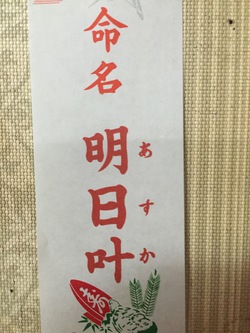 命名
明日叶
あすか
寿